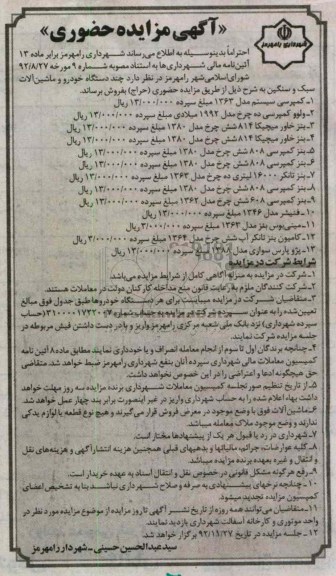 «آگهی مزایده حضوری»
شهرداری رامهرمز
احتراماً بدینوسیله به اطلاع می‌رساند شهرداری رامهرمز برابر ماده ۱۳
آئین‌نامه مالی شهرداری‌ها به استناد مصوبه شماره ۹ مورخه ۹۲/۸/۲۷
شورای اسلامی شهر رامهرمز در نظر دارد چند دستگاه خودرو و ماشین‌آلات
سبک و سنگین به شرح ذیل از طریق مزایده حضوری (حراج) بفروش برساند.
۱-کمپرسی سیستم مدل ۱۳۶۳ مبلغ سپرده ۱۳/۰۰۰/۰۰۰ ریال
۲-ولوو کمپرسی ده چرخ مدل ۱۹۹۲ میلادی مبلغ سپرده ۱۳/۰۰۰/۰۰۰ ریال
۳-بنز خاور میچیکا ۸۱۴ شش چرخ مدل ۱۳۸۰ مبلغ سپرده ۱۳/۰۰۰/۰۰۰ ریال
۴-بنز خاور میچیکا ۸۱۴ شش چرخ مدل ۱۳۸۰ مبلغ سپرده ۱۳/۰۰۰/۰۰۰ ریال
۵-بنز کمپرسی ۸۰۸ شش چرخ مدل ۱۳۸۰ مبلغ سپرده ۱۳/۰۰۰/۰۰۰ ریال
۶-بنز کمپرسی ۸۰۸ شش چرخ مدل ۱۳۸۰ مبلغ سپرده ۱۳/۰۰۰/۰۰۰ ریال
۷-بنز تانکر ۱۶۰۰۰ لیتری ده چرخ مدل مبلغ سپرده ۱۳/۰۰۰/۰۰۰ ریال
۸-بنز کمپرسی ۸۰۸ شش چرخ مدل ۱۳۸۰ مبلغ سپرده ۱۳/۰۰۰/۰۰۰ ریال
۹-بنز کمپرسی ۶۰۸ شش چرخ مدل ۱۳۶۲ مبلغ سپرده ۱۳/۰۰۰/۰۰۰ ریال
۱۰-فنیشر مدل ۱۳۴۶ مبلغ سپرده ۱۳/۰۰۰/۰۰۰ ریال
۱۱-مینی‌بوس بنز مدل ۱۳۶۳ مبلغ سپرده ۳/۰۰۰/۰۰۰ ریال
۱۲-کامیون بنز تانکر آب شش چرخ مدل ۱۳۶۴ مبلغ سپرده ۳/۰۰۰/۰۰۰ ریال
۱۳-پژو پارس سواری مدل ۱۳۸۸ مبلغ سپرده ۱۳/۰۰۰/۰۰۰ ریال
شرایط شرکت در مزایده
۱-شرکت در مزایده به منزله آگاهی کامل از شرایط مزایده می‌باشد.
۲-شرکت کنندگان ملزم به رعایت قانون منع مداخله کارکنان دولت در معاملات هستند.
۳-متقاضیان شرکت در مزایده میبایست برای هر دستگاه خودروها طبق جدول فوق مبالغ
تعیین شده را به عنوان سپرده شرکت در مزایده به حساب شماره (حساب
سپرده شهرداری) نزد بانک ملی شعبه مرکزی رامهرمز واریز و با در دست داشتن فیش مربوطه در
جلسه مزایده شرکت نمایند.
۴-چنانچه برندگان اول تا سوم از انجام معامله انصراف و یا خودداری نمایند مطابق ماده ۸ آئین نامه
معاملات مالی شهرداری سپرده آنان بنفع شهرداری رامهرمز ضبط خواهد شد. متقاضی
حق هیچگونه ادعا و اعتراضی را در این خصوص نخواهد داشت.
۵-از تاریخ تنظیم صورتجلسه کمیسیون معاملات شهرداری برنده مزایده سه روز مهلت خواهد
داشت بهاء اعلام شده را به حساب شهرداری واریز در غیر اینصورت برابر بند چهار عمل خواهد شد.
۶-ماشین آلات فوق با وضع موجود در معرض فروش قرار می‌گیرند و هیچ نوع قطعه یا لوازم یدکی
ندارند و وضع موجود ملاک معامله میباشد.
۷-شهرداری در رد یا قبول هر یک از پیشنهادها مختار است.
۸-کلیه عوارضات، جرائم، مالیاتها و بدهیهای قبلی همچنین هزینه انتشار آگهی و هزینه‌های نقل
و انتقال و غیره بعهده برنده مزایده میباشد.
۹-رفع هر گونه مشکل قانونی در خصوص نقل و انتقال اسناد به عهده خریدار است.
۱۰-چنانچه نرخهای پیشنهادی به صرفه و صلاح شهرداری نباشد بنا به تشخیص اعضای
کمیسیون مزایده تجدید میشود.
۱۱-متقاضیان می‌توانند همه روزه از تاریخ نشر آگهی تا روز مزایده از موضوع مزایده مورد نظر در
واحد موتوری و کارخانه آسفالت شهرداری بازدید نمایند.
۱۲-جلسه مزایده در تاریخ ۹۲/۱۱/۲۷ برگزار خواهد شد.
سیدعبدالحسین حسینی-شهردار رامهرمز